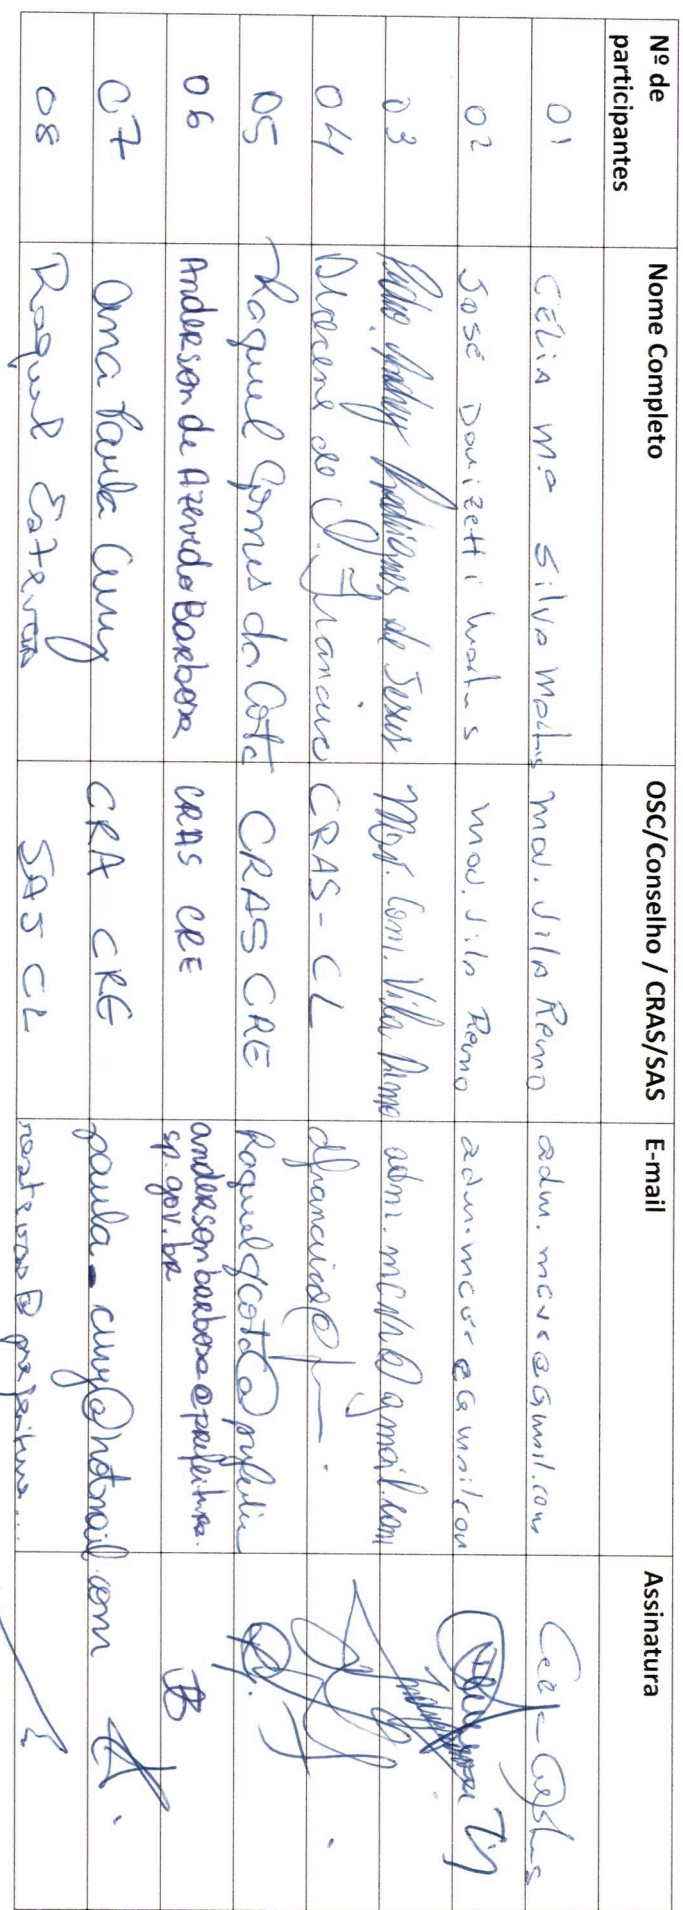 Nº de participantes Nome Completo OSC/Conselho / CRAS/SAS E-mail Assinatura
01 CÉLIA Mª Silva Matus Mov. Vila Remo adm. mcvr@Gmail.com
02 José Donizetti Matus Mov. Vila Remo adm.mcvr@Gmail.com
03 Rodrigues de Jesus Mov. Com. Vila Remo adm. mcvr@gmail.com
04 de Francisco CRAS-CL
05 Raquel Gomes da Cota CRAS CRE
06 Anderson de Azevedo Barbosa CRAS CRE andersonbarbosa@prefeitura.
sp.gov.br
07 Ana Paula Cury CRA CRE paula_cury@hotmail.com
08 Raquel SAS CL